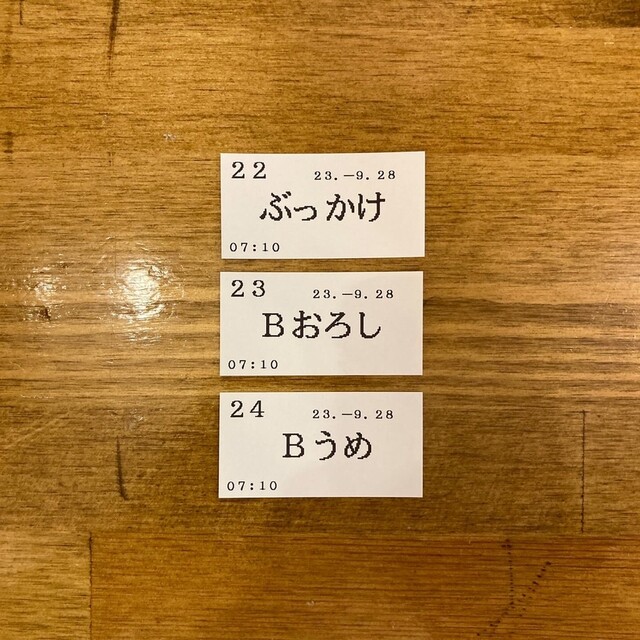 22 23.-9.28
ぶっかけ
07:10
23 23.-9.28
Bおろし
07:10
24 23.-9.28
Bうめ
07:10